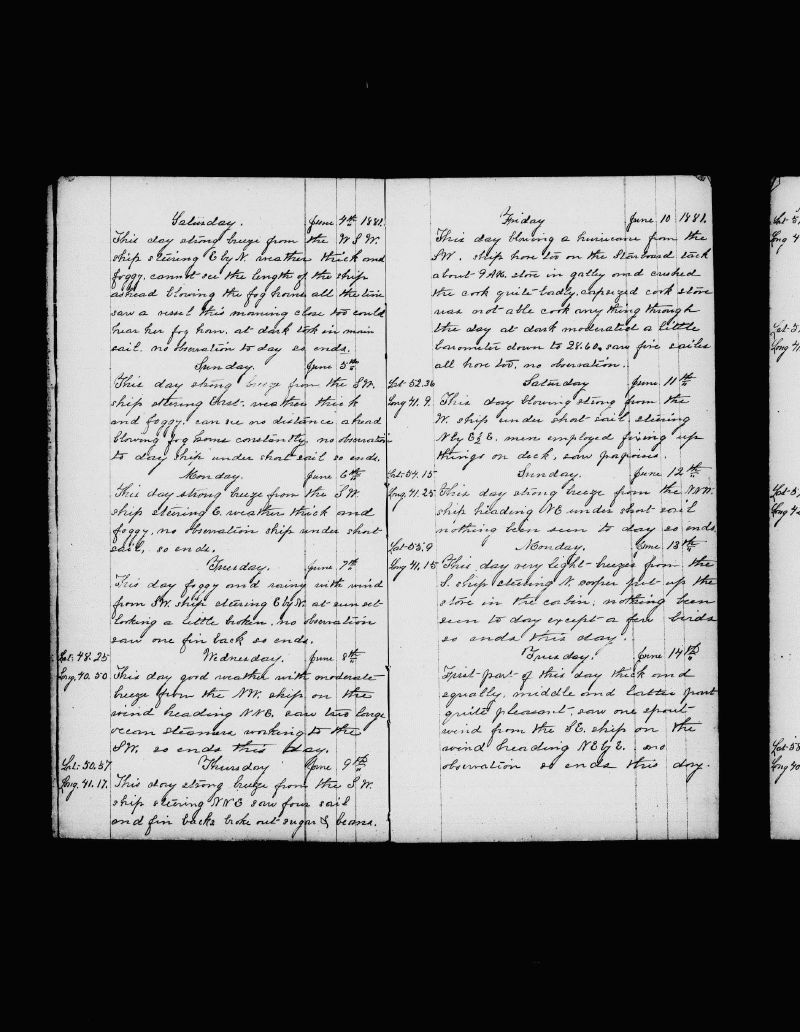 Saturday. June 4th 1881.
This day strong breeze from the W S W.
ship steering E by N. weather thick and
foggy. cannot see the length of the ship
ashead blowing the fog horns all the time
saw a vessel this morning close too could
hear her fog horn, at dark took in main
sail. no observation to day so ends.
Sunday. June 5th
This day strong breeze from the S.W.
ship steering East. weather thick
and foggy. can see no distance ahead
blowing fog horns constantly. no observation
to day ship under short sail so ends.
Monday. June 6th
This day strong breeze from the S.W.
ship steering E. weather thick and
foggy. no observation ship under short
sail, so ends.
Tuesday. June 7th
This day foggy and rainy with wind
from S.W. ship steering E by N. at sunset
looking a little broken. no observation
saw one fin back so ends.
Lat. 48.25 Wednesday. June 8th
Long. 40.50 This day good weather with moderate
breeze from the NW. ship on the
wind heading NNE. saw two large
ocean steamers working to the
S.W. so ends this day.
Lat. 50.57 Thursday June 9th
Long. 41.17. This day strong breeze from the S.W.
ship steering NNE saw four sail
and fin backs broke out sugar & beans.
Friday June 10 1881.
This day blowing a hurricane from the
SW. ship hove too on the Starboard tack
about 9 AM. stove in gally and crushed
the cook quite badly. capsized cook stove
was not able cook any thing through
the day at dark moderated a little
barometer down to 28.60. saw five sailes
all hove too. no observation.
Lat 52.36 Saturday June 11th
Long 41.9. This day blowing strong from the
W. ship under short sail steering
N by E½E. men employed fixing up
things on deck, saw popoises.
Lat. 54.15 Sunday. June 12th
Long. 41.25 This day strong breeze from the NNW.
ship heading NE under short sail
nothing been seen to day so ends
Lat 55.9 Monday. June 13th
Long 41.15 This day very light breezes from the
S. ship steering N. cooper put up the
stove in the cabin. nothing been
seen to day except a few birds
so ends this day.
Tuesday. June 14th
First part of this day thick and
squally, middle and latter part
quite pleasant. saw one spout
wind from the SE. ship on the
wind heading NE by E. no
observation so ends this day.